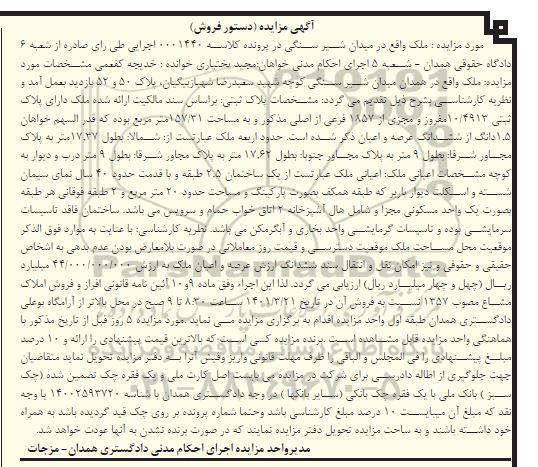 آگهی مزایده (دستور فروش)
مورد مزایده : ملک واقع در میدان شیر سنگی در پرونده کلاسه ۰۰۰۱۴۴۰ اجرایی طی رای صادره از شعبه ۶
دادگاه حقوقی همدان - شعبه ۵ اجرای احکام مدنی خواهان:مجید بختیاری خوانده : خدیجه کفعمی مشخصات مورد
مزایده: ملک واقع در همدان میدان شیر سنگی کوچه شهید سعیدرضا شهبازبیگیان، پلاک ۵۰ و ۵۲ بازدید بعمل آمد و
نظریه کارشناسی بشرح ذیل تقدیم می گردد: مشخصات پلاک ثبتی: براساس سند مالکیت ارائه شده ملک دارای پلاک
ثبتی ۱۰/۴۹۱۳مفروز و مجزی از ۱۸۵۷ فرعی از اصلی مذکور و به مساحت ۱۵۷/۳۱متر مربع بوده که قدر السهم خواهان
۱.۵دانگ از ششدانگ عرصه و اعیان ذکر شده است. حدود اربعه ملک عبارتست از: شمالا: بطول ۱۷.۳۷متر به پلاک
مجاور شرقا: بطول ۹ متر به پلاک مجاور جنوبا: بطول ۱۷.۶۲ متر به پلاک مجاور شرقا: بطول ۹ متر درب و دیوار به
کوچه مشخصات اعیانی ملک: اعیانی ملک عبارتست از یک ساختمان ۲.۵ طبقه و با قدمت حدود ۴۰ سال نمای سیمان
شسته و اسکلت دیوار باربر که طبقه همکف بصورت پارکینگ و مساحت حدود ۲۰ متر مربع و ۲ طبقه فوقانی هر طبقه
بصورت یک واحد مسکونی مجزا و شامل هال آشپزخانه ۲ اتاق خواب حمام و سرویس می باشد. ساختمان فاقد تاسیسات
سرمایشی بوده و تاسیسات گرمایشی واحد بخاری و آبگرمکن می باشد. نظریه کارشناسی: با عنایت به موارد فوق الذکر
موقعیت محل مساحت ملک موقعیت دسترسی و قیمت روز معاملاتی در صورت بلامعارض بودن عدم بدهی به اشخاص
حقیقی و حقوقی و نیز امکان نقل و انتقال سند ششدانگ ارزش عرصه و اعیان ملک به ارزش ۴۴/۰۰۰/۰۰۰/۰۰۰ میلیارد
ریال (چهل و چهار میلیارد ریال) ارزیابی می گردد. لذا این اجراء وفق ماده ۹و۱۰ آئین نامه قانونی افراز و فروش املاک
مشاع مصوب ۱۳۵۷ نسبت به فروش آن در تاریخ ۱۴۰۱/۳/۲۱ ساعت ۸:۳۰ تا ۹ صبح در محل بالاتر از آرامگاه بوعلی
دادگستری همدان طبقه اول واحد مزایده اقدام به برگزاری مزایده می نماید .مورد مزایده ۵ روز قبل از تاریخ مذکور با
هماهنگی واحد مزایده قابل مشاهده است .برنده مزایده کسی است که بالاترین قیمت پیشنهادی را ارائه و ۱۰ درصد
مبلغ پیشنهادی را فی المجلس و الباقی را ظرف مهلت قانونی واریز وفیش آنرا به دفتر مزایده تحویل نماید متقاضیان
جهت جلوگیری از اطاله دادرسی برای شرکت در مزایده می بایست اصل کارت ملی و یک فقره چک تضمین شده (چک
سبز ) بانک ملی با یک فقره چک بانکی (سایر بانکها ) در وجه دادگستری همدان با شناسه ۱۴۰۰۲۵۹۳۷۲۰ یا وجه
نقد که مبلغ آن میبایست ۱۰ درصد مبلغ کارشناسی باشد وحتما شماره پرونده بر روی چک قید گردیده باشد به همراه
خود داشته باشند و به ساحت مزایده تحویل دفتر مزایده نمایند که در صورت برنده نشدن به آنها عودت خواهد شد.
مدیرواحد مزایده اجرای احکام مدنی دادگستری همدان- مزجات
۰۲۱-۸۸۳۴۹۶۷۰-۵